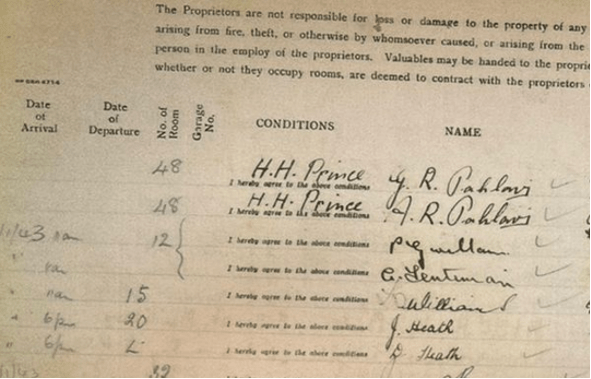 The Proprietors are not responsible for loss or damage to the property of any
arising from fire, theft, or otherwise by whomsoever caused, or arising from the
person in the employ of the proprietors. Valuables may be handed to the
whether or not they occupy rooms, are deemed to contract with the proprietors
Date of Arrival Date of Departure No. of Room Garage No. CONDITIONS NAME
48 H.H. Prince G. R. Pahlavi
I hereby agree to the above conditions
48 H.H. Prince A. R. Pahlavi
I hereby agree to the above conditions
12 I hereby agree to the above conditions
I hereby agree to the above conditions
15 I hereby agree to the above conditions Williams
6pm 20 I hereby agree to the above conditions J. Heath
6pm I hereby agree to the above conditions D. Heath
32